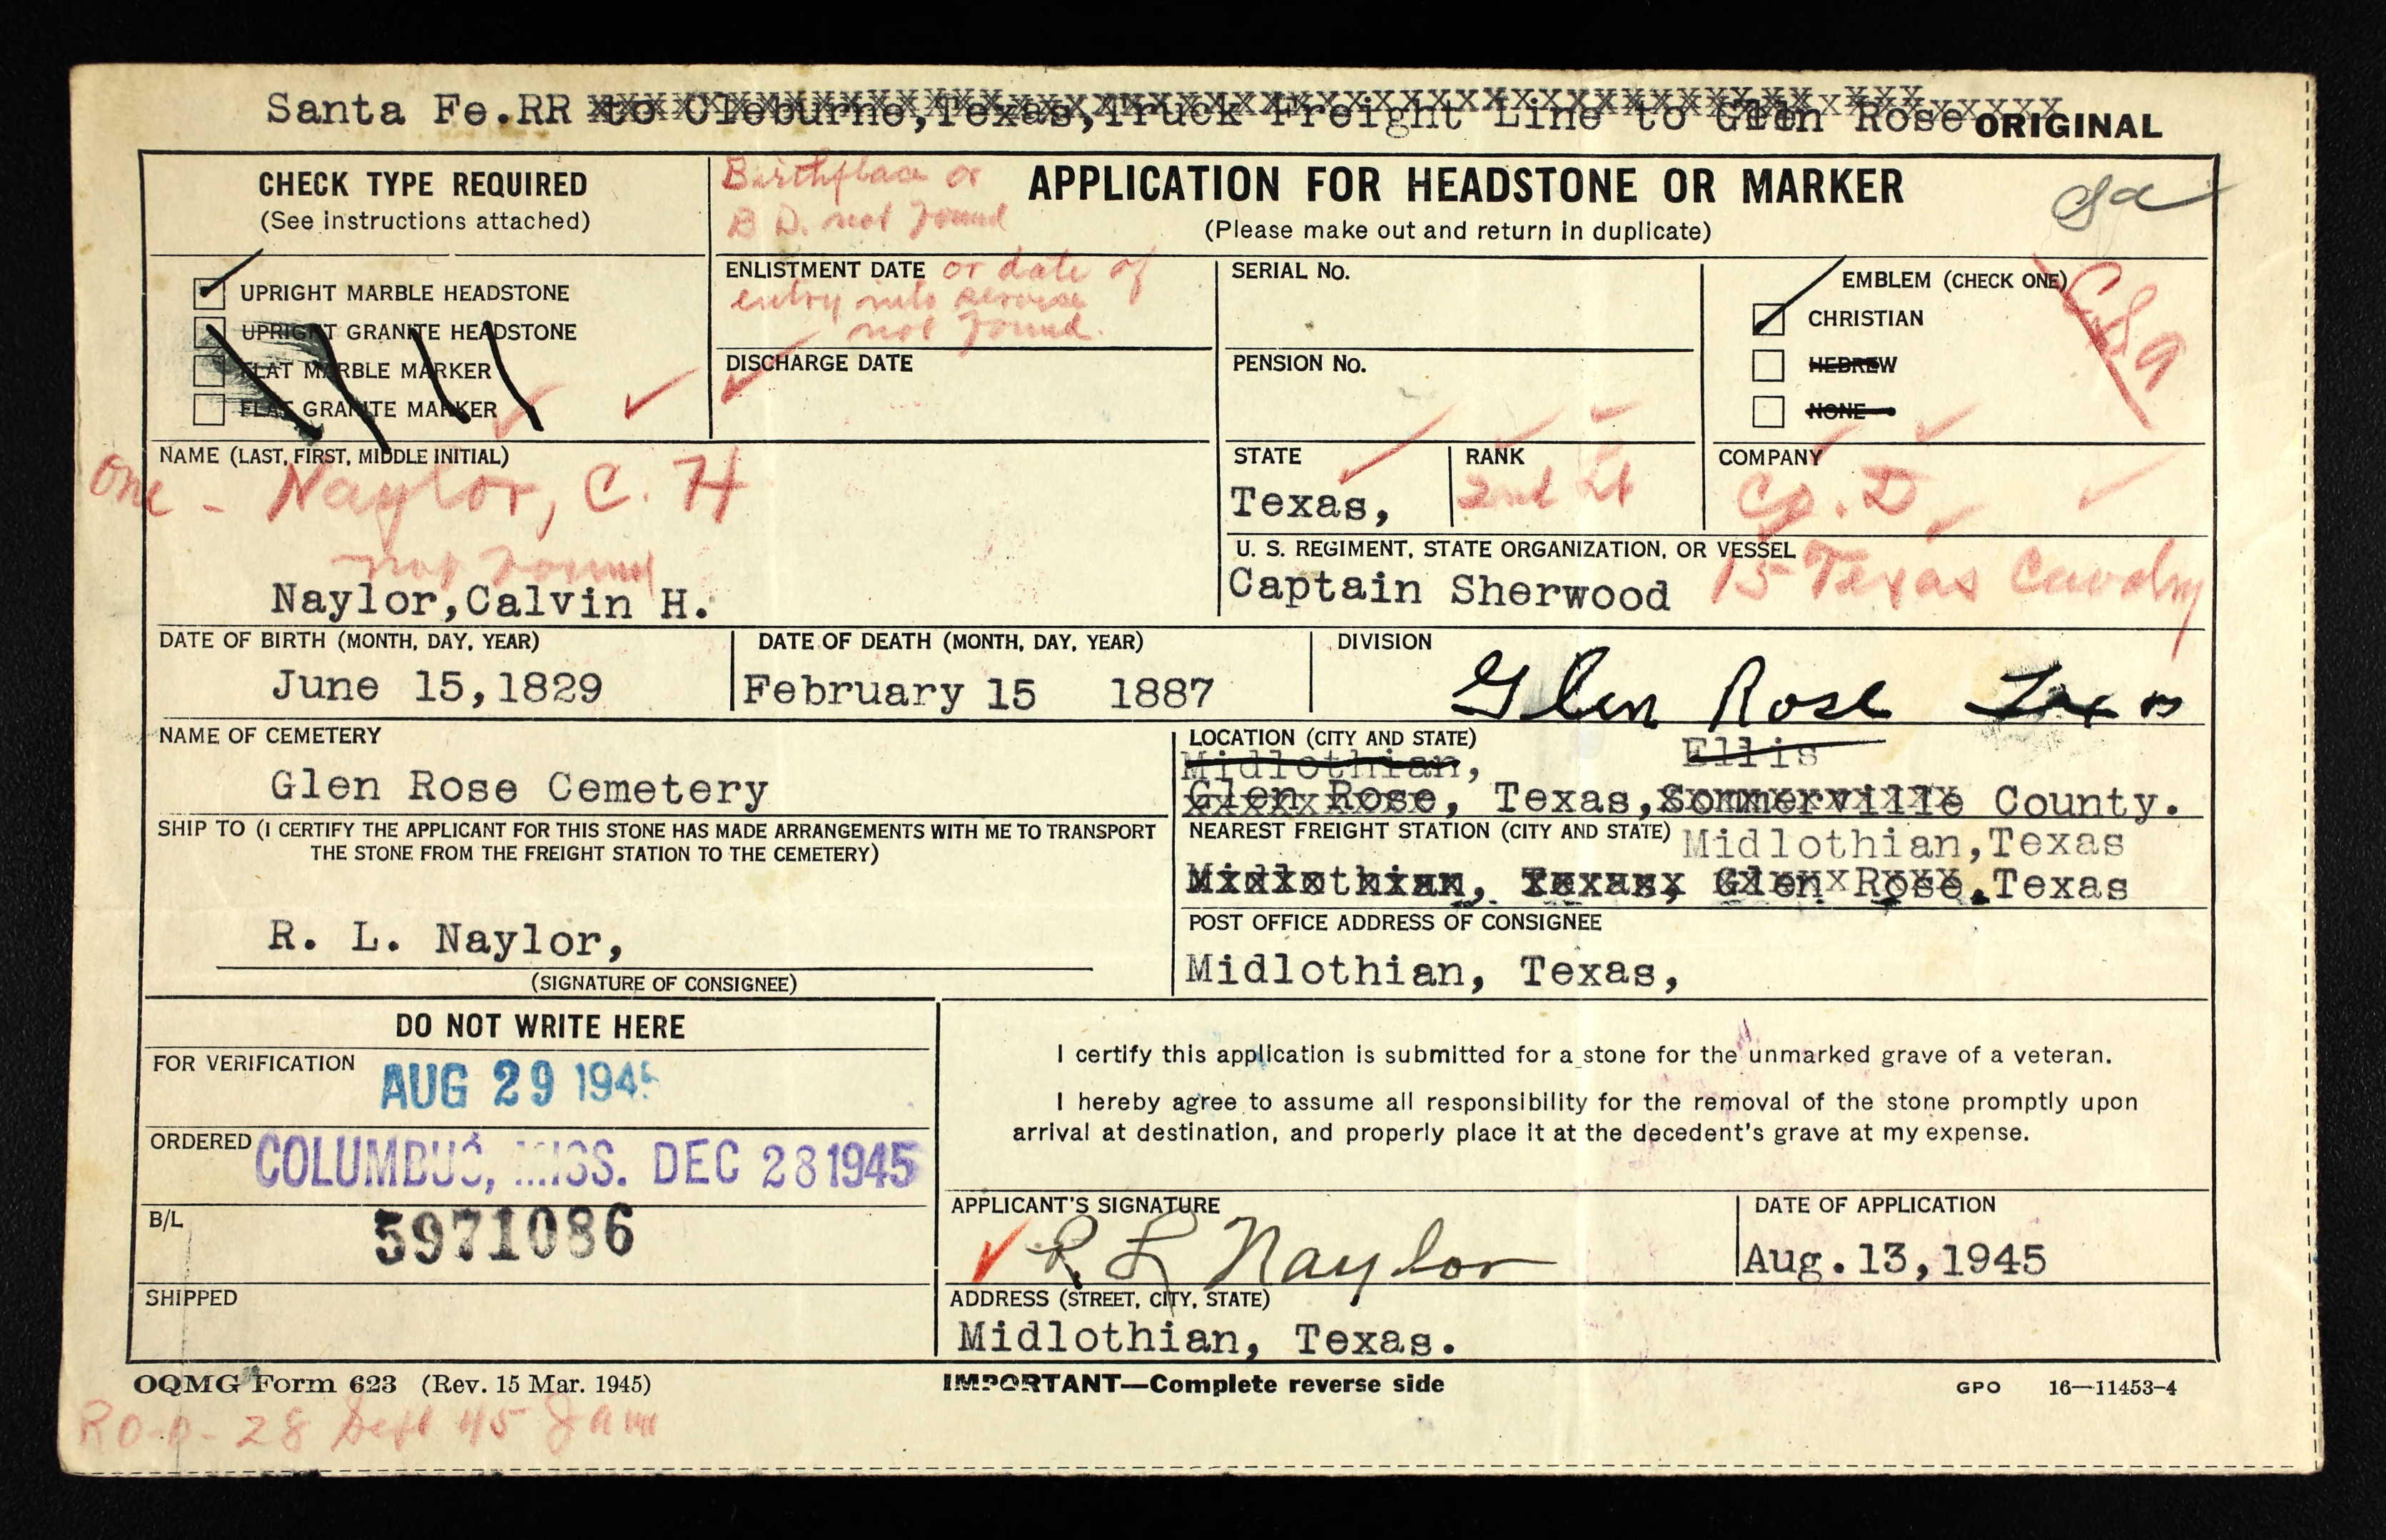 Santa Fe.RR to Cleburne,Texas,Truck Freight Line to Glen Rose ORIGINAL
CHECK TYPE REQUIRED
(See instructions attached)
Birthplace or
B D. not found
APPLICATION FOR HEADSTONE OR MARKER
(Please make out and return in duplicate)
UPRIGHT MARBLE HEADSTONE
UPRIGHT GRANITE HEADSTONE
FLAT MARBLE MARKER
FLAT GRANITE MARKER
ENLISTMENT DATE or date of
entry into service
not found.
DISCHARGE DATE
SERIAL No.
PENSION No.
EMBLEM (CHECK ONE)
CHRISTIAN
HEBREW
NONE
CSA
NAME (LAST, FIRST, MIDDLE INITIAL)
One - Naylor, C. H
not found
Naylor,Calvin H.
STATE
Texas,
RANK
2nd Lt
COMPANY
Co. D
U. S. REGIMENT, STATE ORGANIZATION, OR VESSEL
Captain Sherwood 15 Texas Cavalry
DATE OF BIRTH (MONTH, DAY, YEAR)
June 15,1829
DATE OF DEATH (MONTH, DAY, YEAR)
February 15 1887
DIVISION
Glen Rose Texas
NAME OF CEMETERY
Glen Rose Cemetery
LOCATION (CITY AND STATE)
Midlothian, Ellis
Glen Rose, Texas,Sommerville County.
SHIP TO (I CERTIFY THE APPLICANT FOR THIS STONE HAS MADE ARRANGEMENTS WITH ME TO TRANSPORT
THE STONE FROM THE FREIGHT STATION TO THE CEMETERY)
R. L. Naylor,
(SIGNATURE OF CONSIGNEE)
NEAREST FREIGHT STATION (CITY AND STATE) Midlothian,Texas
Midlothian, Texas, Glen Rose.Texas
POST OFFICE ADDRESS OF CONSIGNEE
Midlothian, Texas,
DO NOT WRITE HERE
FOR VERIFICATION
AUG 29 194
ORDERED COLUMBUS, MISS. DEC 28 1945
B/L
5971086
SHIPPED
I certify this application is submitted for a stone for the unmarked grave of a veteran.
I hereby agree to assume all responsibility for the removal of the stone promptly upon
arrival at destination, and properly place it at the decedent's grave at my expense.
APPLICANT'S SIGNATURE
R. L Naylor
DATE OF APPLICATION
Aug.13,1945
ADDRESS (STREET, CITY, STATE)
Midlothian, Texas.
OQMG Form 623 (Rev. 15 Mar. 1945)
IMPORTANT—Complete reverse side
GPO 16—11453-4
28 Sept 45